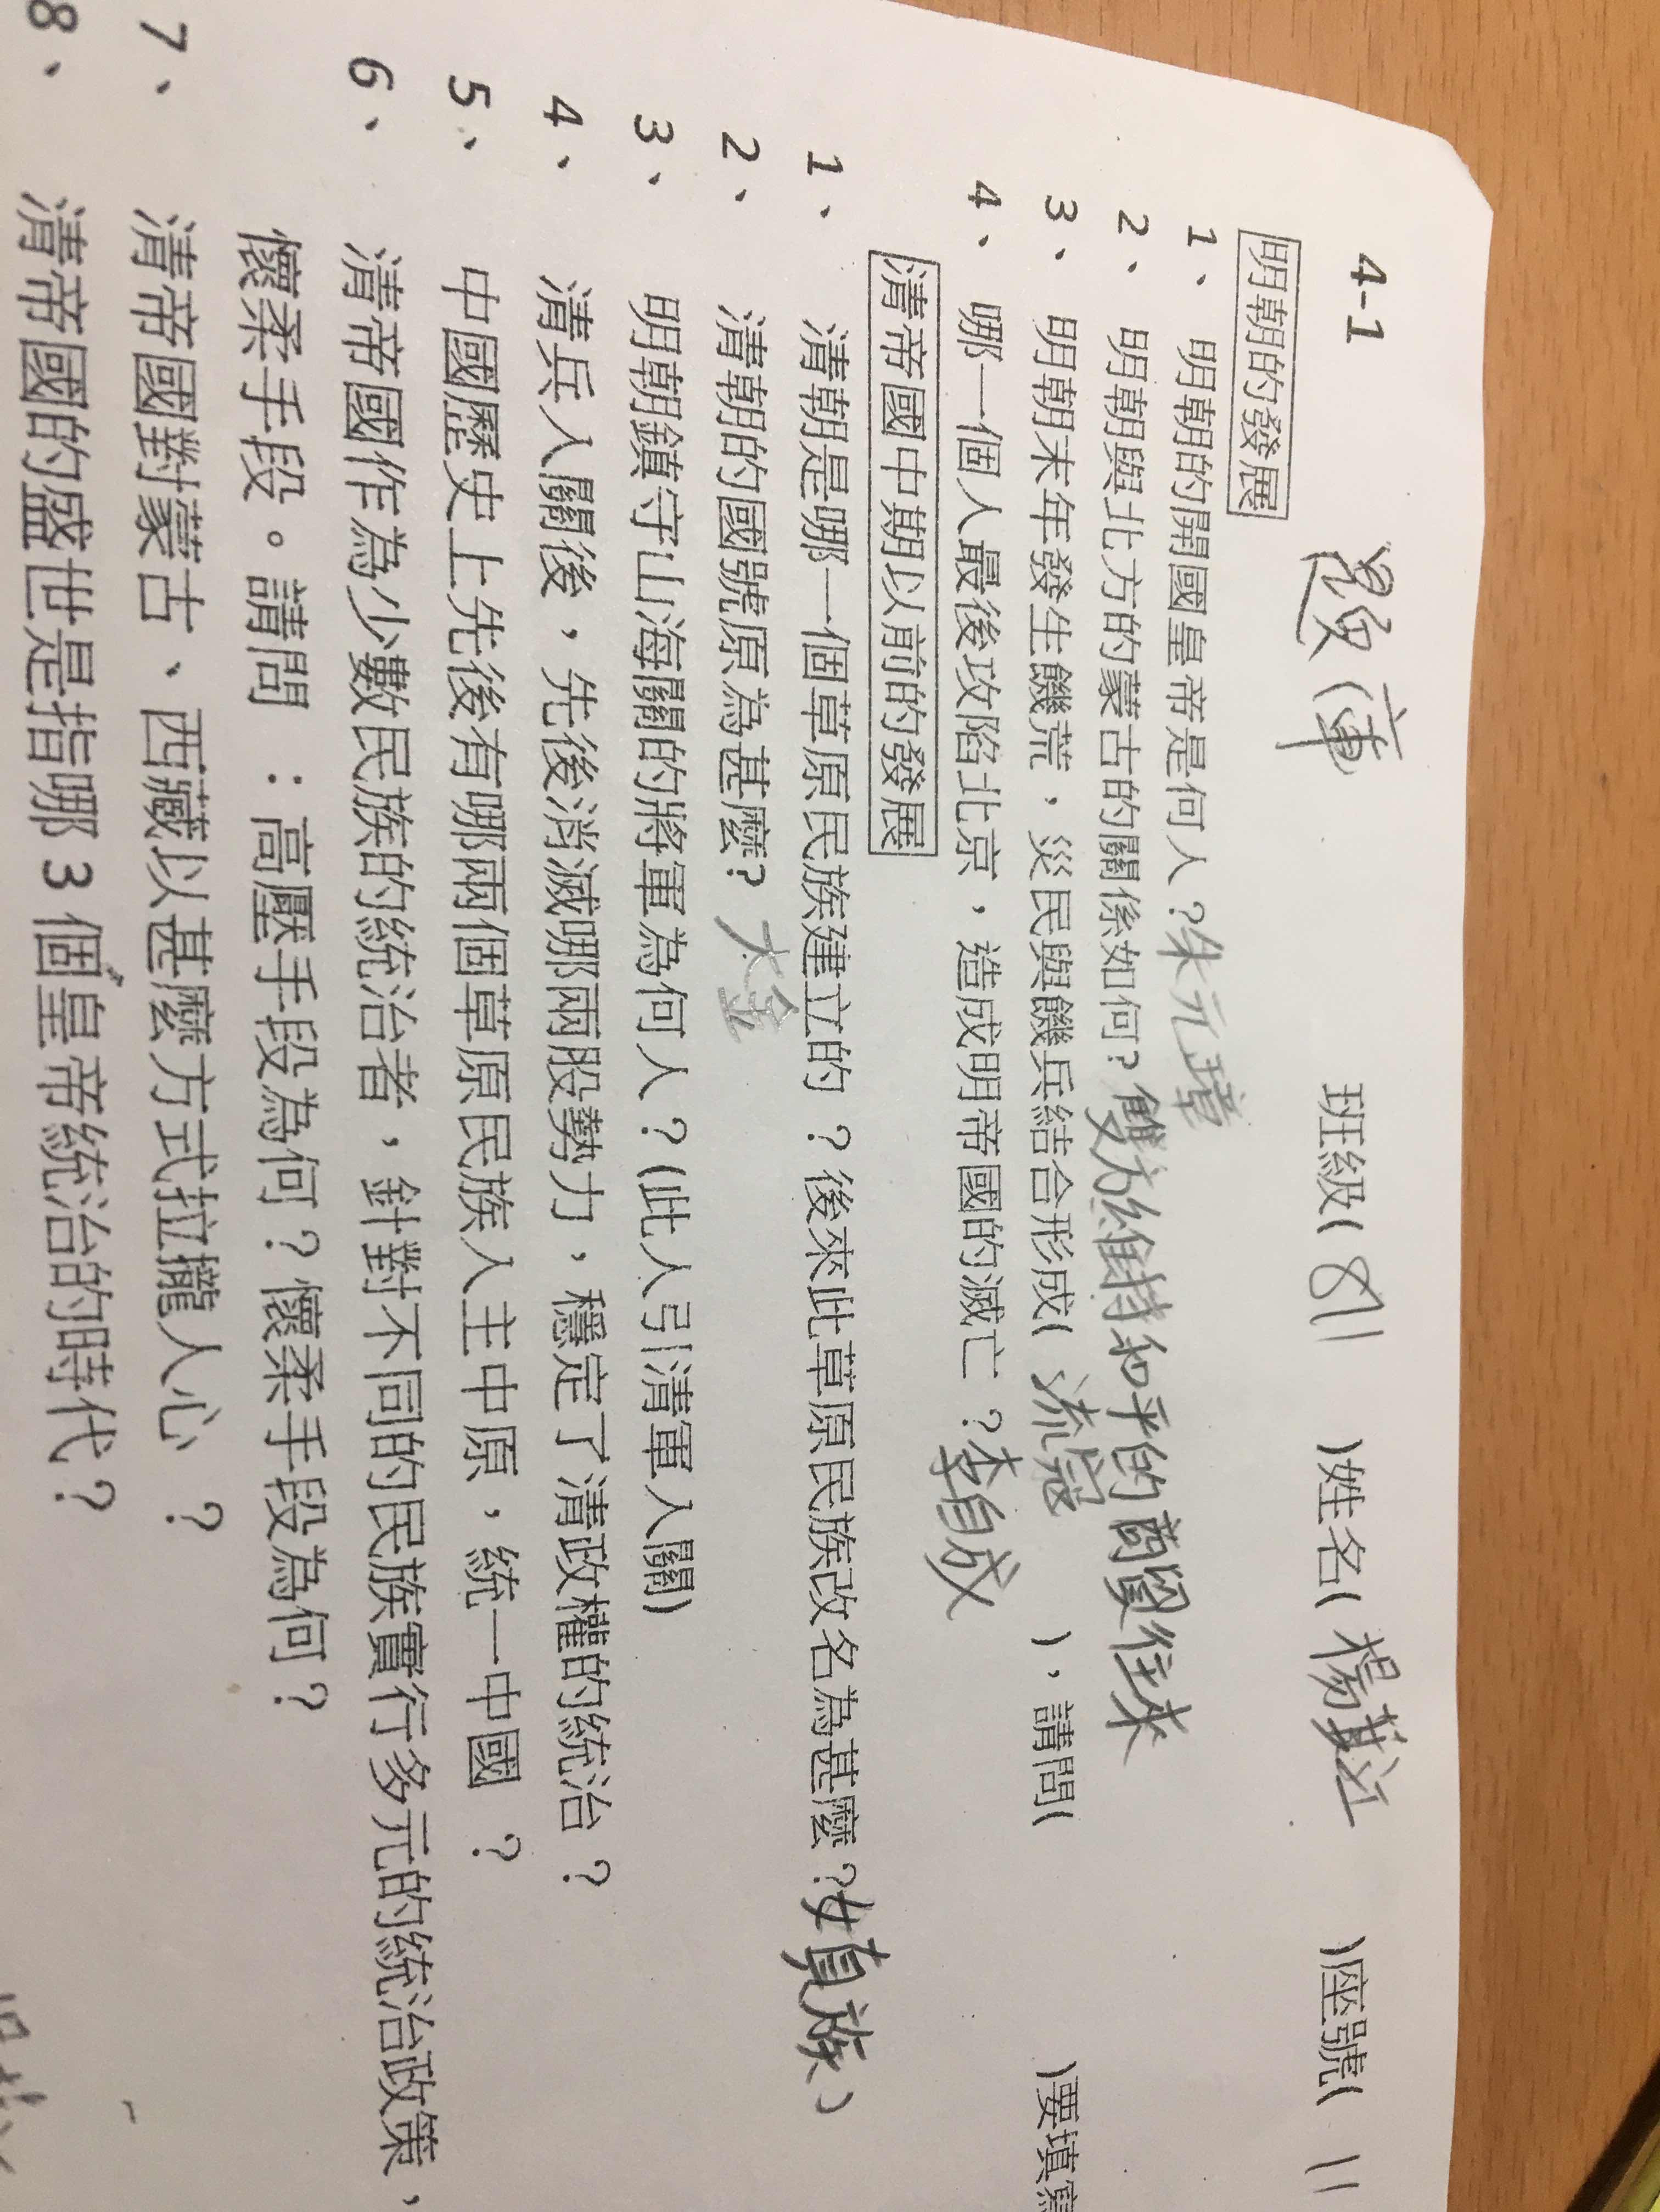 4-1 班級( 811 )姓名( 楊 )座號( 11
明朝的發展
1、 明朝的開國皇帝是何人？朱元璋
2、 明朝與北方的蒙古的關係如何？雙方維持和平的商貿往來
3、 明朝末年發生饑荒，災民與饑兵結合形成( 流寇 )，請問( )要填寫
4、 哪一個人最後攻陷北京，造成明帝國的滅亡？李自成
清帝國中期以前的發展
1、 清朝是哪一個草原民族建立的？後來此草原民族改名為甚麼？女真族
2、 清朝的國號原為甚麼？大金
3、 明朝鎮守山海關的將軍為何人？(此人引清軍入關)
4、 清兵入關後，先後消滅哪兩股勢力，穩定了清政權的統治？
5、 中國歷史上先後有哪兩個草原民族入主中原，統一中國？
6、 清帝國作為少數民族的統治者，針對不同的民族實行多元的統治政策，
懷柔手段。請問：高壓手段為何？懷柔手段為何？
7、 清帝國對蒙古、西藏以甚麼方式拉攏人心？
8、 清帝國的盛世是指哪3個皇帝統治的時代？